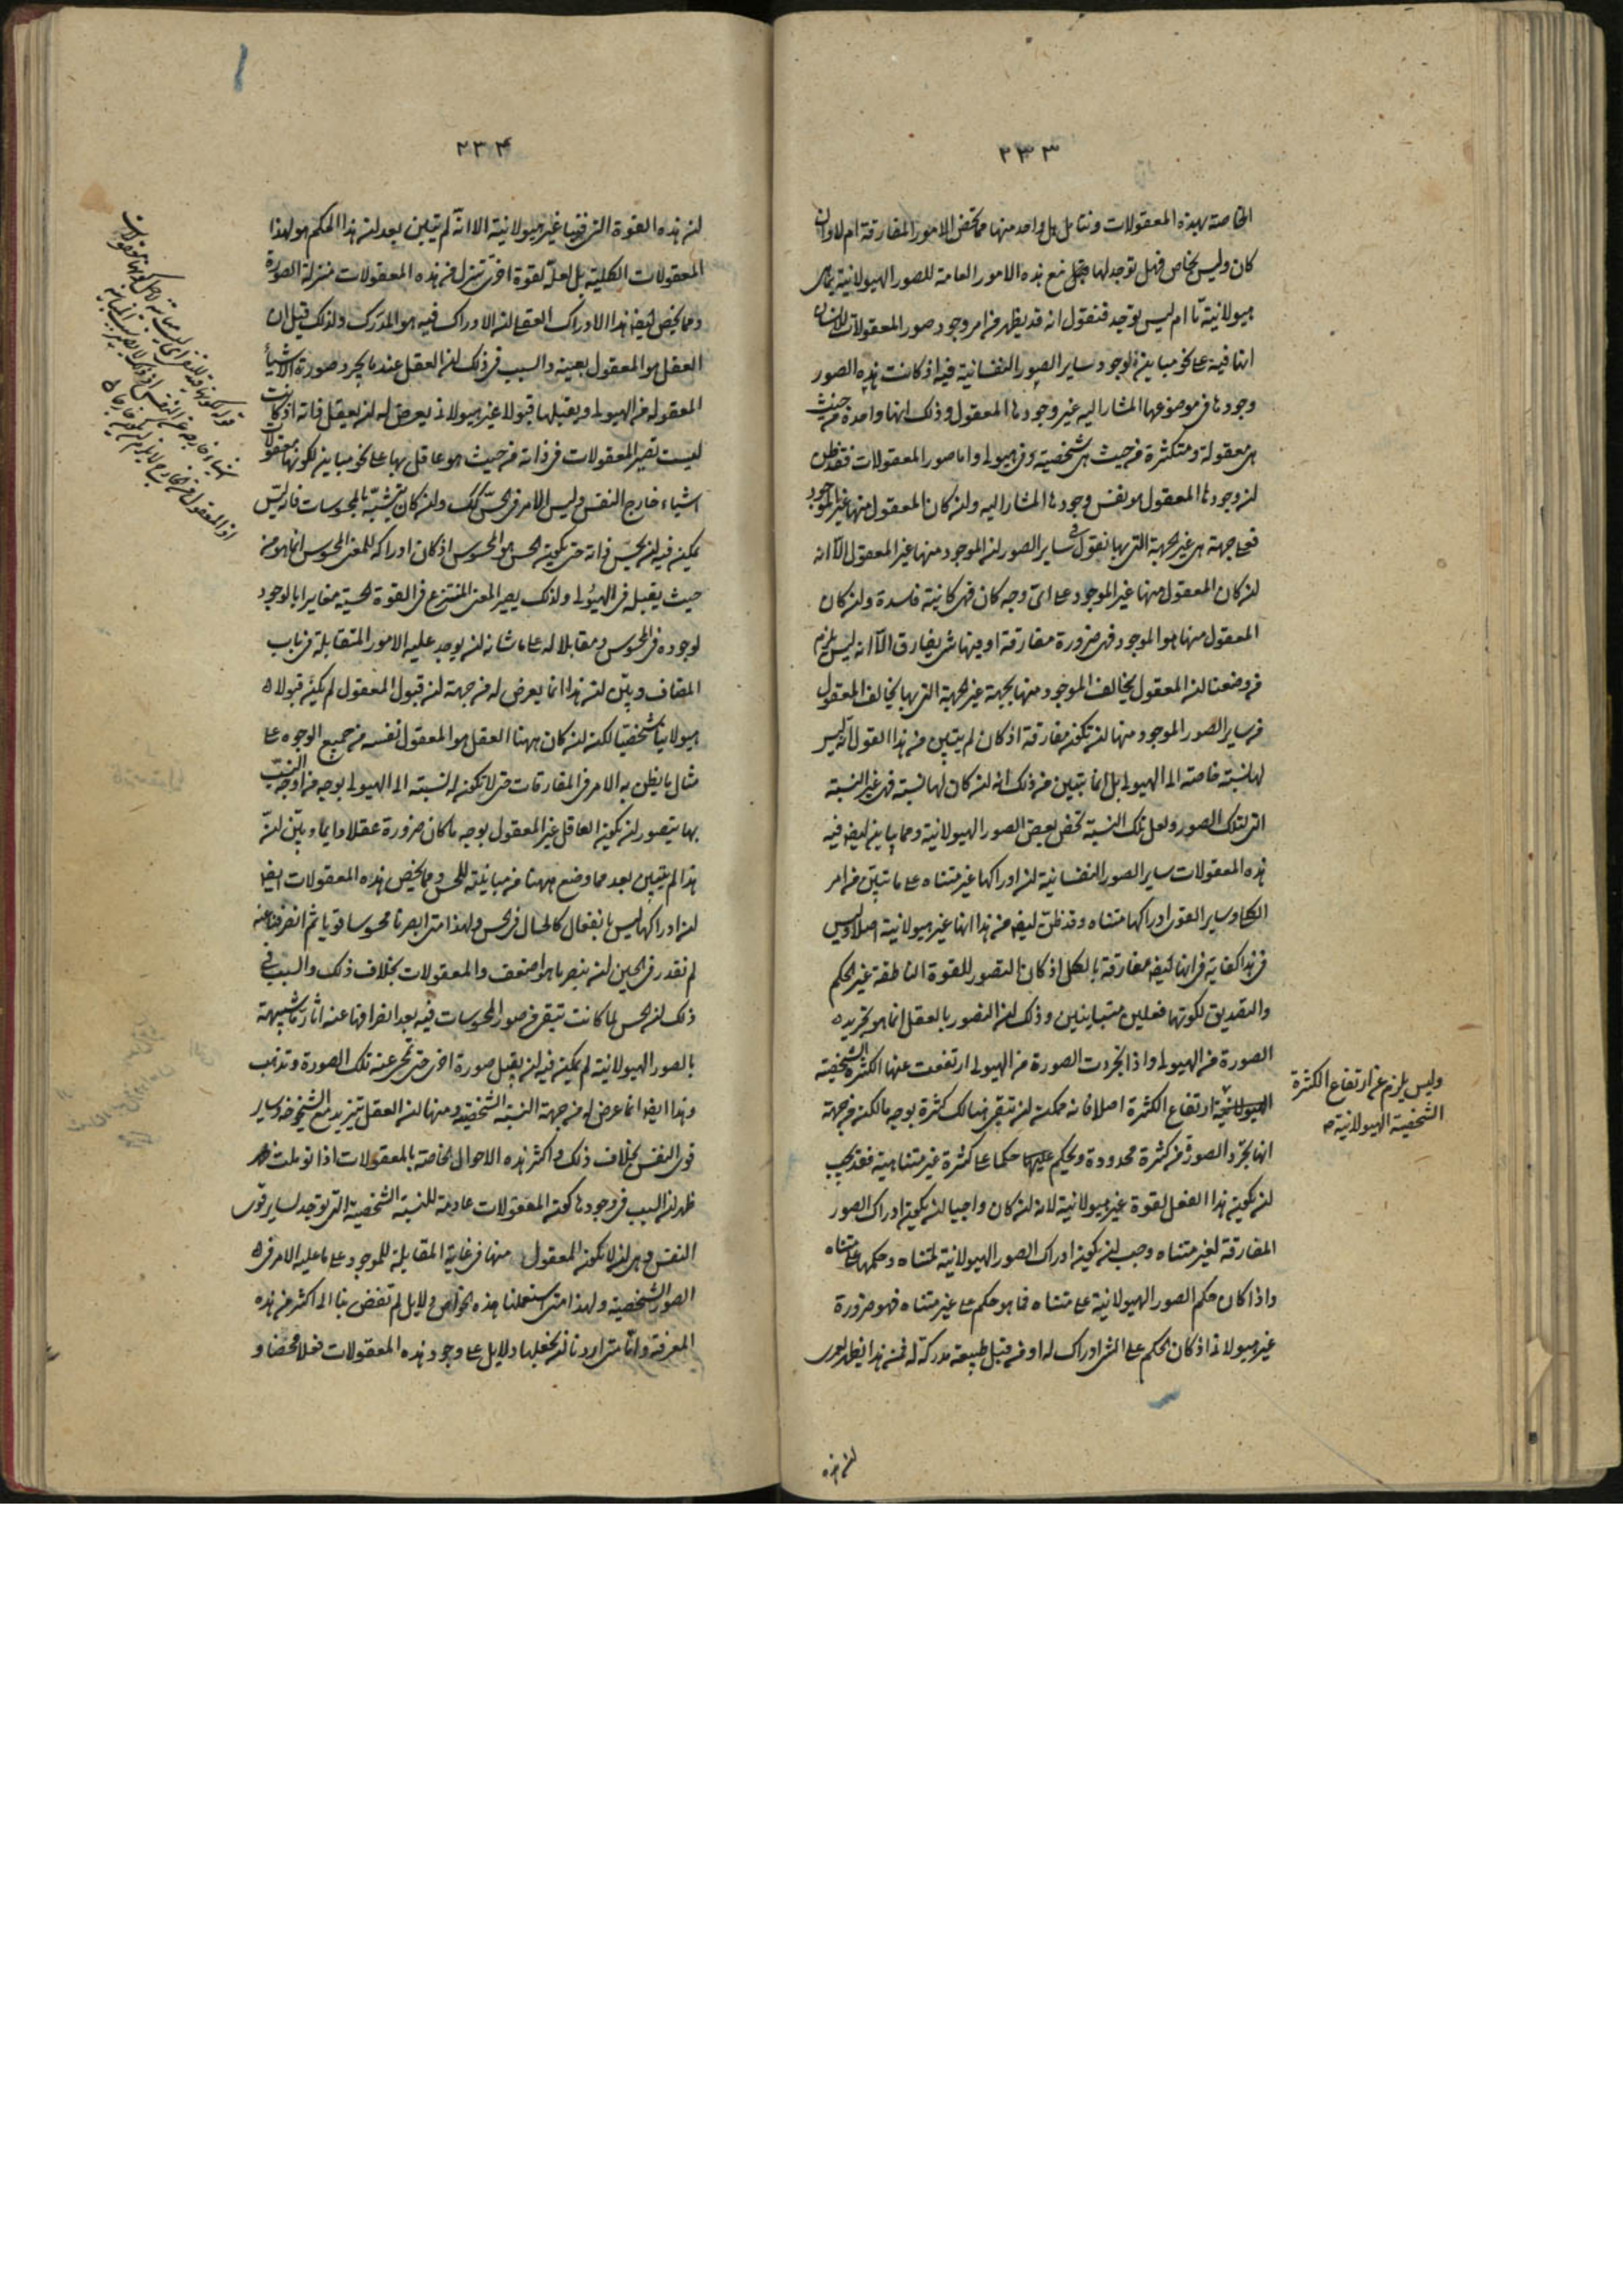 ٢٣٣
الخاصة بهذه المعقولات ونتامل هل واحد منها مما يخص الامور المفارقة ام لا وان
كان وليس بخاص فهل توجد لها مع هذه الامور العامة للصور الهيولانية بما هى
هيولانية ما ام ليس توجد فنقول انه قد يظهر من امر وجود صور المعقولات للانسان
انها فيه على نحو مباين لوجود ساير الصور النفسانية فيه اذ كانت هذه الصور
وجودها فى موضوعها المشار اليه غير وجودها المعقول وذلك انها واحدة من حيث
هى معقولة ومتكثرة من حيث هى شخصية وفى هيولى واما صور المعقولات فقد يظن
لن وجودها المعقول هو نفس وجودها المشار اليه ولن كان المعقول منها غير الموجود
فعلى جهة هى غير الجهة التى بها نقول فى ساير الصور لن الموجود منها غير المعقول الا انه
لن كان المعقول منها غير الموجود على اى وجه كان فهى كائنة فاسدة ولن كان
المعقول منها هو الموجود فهى ضرورة مفارقة او فيها شى يفارق الا انه ليس يلزم
من وضعنا لن المعقول يخالف الموجود منها بجهة غير الجهة التى بها يخالف المعقول
فى ساير الصور الموجود منها لن تكون مفارقة اذ كان لم يتبين من هذا القول انه ليس
لها نسبة خاصة الى الهيولى بل انما يتبين من ذلك انه لن كان لها نسبة فهى غير النسبة
التى لتلك الصور ولعل تلك النسبة تخص بعض الصور الهيولانية ومما يباين ايضا فيه
هذه المعقولات ساير الصور النفسانية لن ادراكها غير متناه على ما تبين من امر
الكلى وساير القوى ادراكها متناه وقد ظن ايضا من هذا انها غير هيولانية اصلا وليس
فى هذا كفاية فى انها ايضا مفارقة بالكل اذ كان التصور للقوة الناطقة غير الحكم
والتصديق لكونهما فعلين متباينين وذلك لن التصور بالعقل انما هو تجريده
الصورة من الهيولى واذا تجردت الصورة من الهيولى ارتفعت عنها الكثرة الشخصية
الهيولانية ارتفاع الكثرة اصلا فانه ممكن لن تبقى هنالك كثرة بوجه ما لكن من جهة
انها تجرد الصور من كثرة محدودة وتحكم عليها حكما على كثرة غير متناهية فقد يجب
لن يكون هذا الفعل لقوة غير هيولانية لانه لن كان واجبا لن يكون ادراك الصور
المفارقة لغير متناه وجب لن يكون ادراك الصور الهيولانية لمتناه وحكمها على متناه
واذا كان حكم الصور الهيولانية على متناه فما هو حكم على غير متناه فهو ضرورة
غير هيولانى اذ كان الحكم على الشى ادراك له او من قبل طبيعة مدركة له فمن هذا يظهر لعمرى
لن هذه
وليس يلزم عن ارتفاع الكثرة
الشخصية الهيولانية
٢٣٤
لن هذه القوة التى فينا غير هيولانية الا انه لم يتبين بعد لن هذا الحكم هو لهذا
المعقولات الكلية بل لعله لقوة اخرى تنزل من هذه المعقولات منزلة الصورة
ومما يخص ايضا هذا الادراك العقلى لن الادراك فيه هو المدرك ولذلك قيل ان
العقل هو المعقول بعينه والسبب فى ذلك لن العقل عندما يجرد صورة الاشياء
المعقولة من الهيولى ويقبلها قبولا غير هيولانى يعرض له لن يعقل ذاته اذ كانت
ليست تصير المعقولات فى ذاته من حيث هو عاقل بها على نحو مباين لكونها معقولات
اشياء خارج النفس وليس الامر فى الحس كذلك ولن كان يتشبه بالمحسوسات فانه ليس
يمكن فيه لن يحس ذاته حتى يكون الحس هو المحسوس اذ كان ادراكه للمعنى المحسوس انما هو من
حيث يقبله فى الهيولى ولذلك يصير المعنى المنتزع فى القوة الحسية مغايرا بالوجود
لوجوده فى المحسوس ومقابلا له على ما شانه لن يوجد عليه الامور المتقابلة فى باب
المضاف وبين لن هذا انما يعرض له من جهة لن قبول المعقول لم يكن قبولا
هيولانيا شخصيا لكن لن كان ههنا العقل هو المعقول نفسه من جميع الوجوه على
مثال ما يظن به الامر فى المفارقات حتى لا تكون له نسبة الى الهيولى بوجه من اوجه النسب
بها يتصور لن يكون العاقل غير المعقول بوجه ما كان ضرورة عقلا دايما وبين لن
هذا لم يتبين بعد مما وضع ههنا من مباينته للحس ومما يخص هذه المعقولات ايضا
لن ادراكها ليس بانفعال كالحال فى الحس ولهذا متى ابصرنا محسوسا قويا ثم انصرفنا عنه
لم نقدر فى الحين لن نبصر ما هو اضعف والمعقولات بخلاف ذلك والسبب فى
ذلك لن الحس لما كانت تبقى من صور المحسوسات فيه بعد انصرافها عنه اثار ما شبيهة
بالصور الهيولانية لم يمكن فيه لن يقبل صورة اخرى حتى تمحى عنه تلك الصورة وتذهب
وهذا ايضا انما عرض له من جهة النسبة الشخصية ومنها لن العقل يتزيد مع الشيخوخة وساير
قوى النفس بخلاف ذلك واكثر هذه الاحوال الخاصة بالمعقولات اذا توملت
ظهر لن السبب فى وجودها كون المعقولات عادمة للنسبة الشخصية التى توجد لساير قوى
النفس وهى لن لا تكون المعقول منها فى غاية المقابلة للموجود على ما عليه الامر فى
الصور الشخصية ولهذا متى استعملنا هذه الخواص دلايل لم تفض بنا الى اكثر من هذه
المعرفة واما متى اردنا لن نجعلها دلايل على وجود هذه المعقولات فعلا محضا و